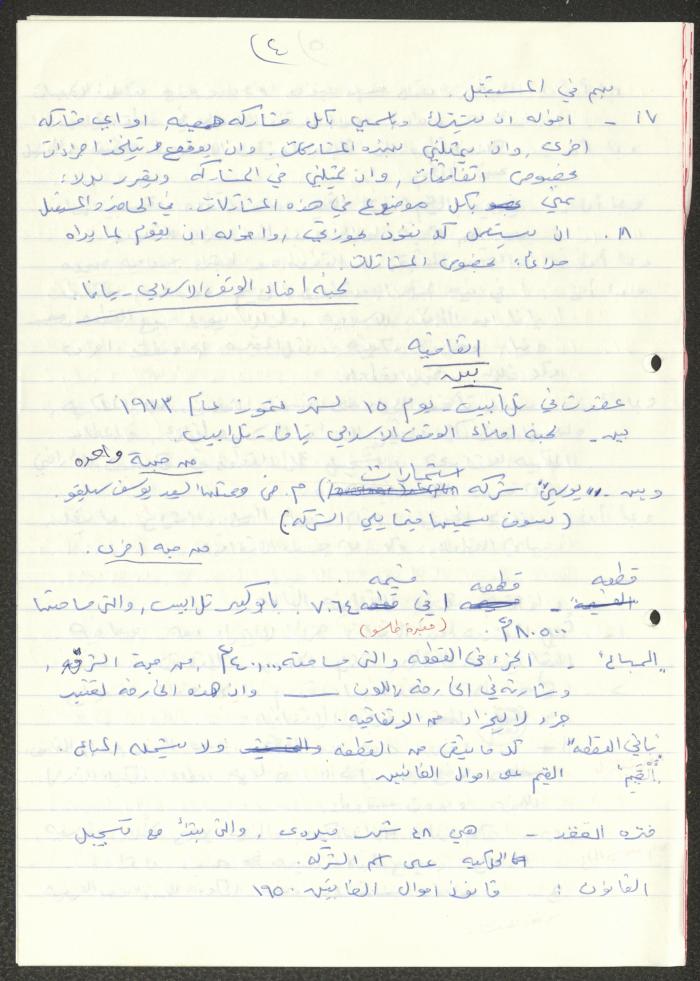 (٤)
سهم في المستقبل
١٧ - اخوله ان يشترك وباسمي بكل مشاركه معينه، او اي مشاركه
اخرى، وان يمثلني بهذه المشاركات، وان يوقع ويتخذ اجراءات
بخصوص اتفاقيات، وان يمثلني في المشاركه ويقرر بدلاً
عني بكل موضوع في هذه المشاركات، في الحاضر والمستقبل
١٨. ان يستعمل كل نفوذ بحوزتي، واخوله ان يقوم بما يراه
ملائماً بخصوص المشاركات.
لجنة امناء الوقف الاسلامي - يافا
اتفاقيه
بين
عقدت في تل ابيب - يوم ١٥ لشهر تموز عام ١٩٧٣
بين - لجنة امناء الوقف الاسلامي يافا - تل ابيب.
من جهة واحده
وبين - "يوسي" شركه استثمارات م. ض وممثلها السيد يوسف
(سوف نسميها فيما يلي الشركه)
من جهة اخرى.
قطعه - قطعه ١ في قسيمه ٧٠٦٤ بالوكير تل ابيب، والتي مساحتها
٨٠٥٠٠ م².
(مقبرة طاسو)
"المباع" - الجزء في القطعه والتي مساحته ٤٠،٠٠٠ م² من جهة الشرق،
ومشار له في الخارطه باللون ـــــ وان هذه الخارطه تعتبر
جزء لا يتجزأ من الاتفاقيه.
"باقي القطعه" - كل ما يتبقى من القطعه ولا يشمله المباع.
"القَيّم" القيم على اموال الغائبين
فتره العقد - هي ٤٨ شهر ميلادي، والتي تبتدأ مع تسجيل
الملكيه على اسم الشركه.
القانون: قانون اموال الغائبين ١٩٥٠